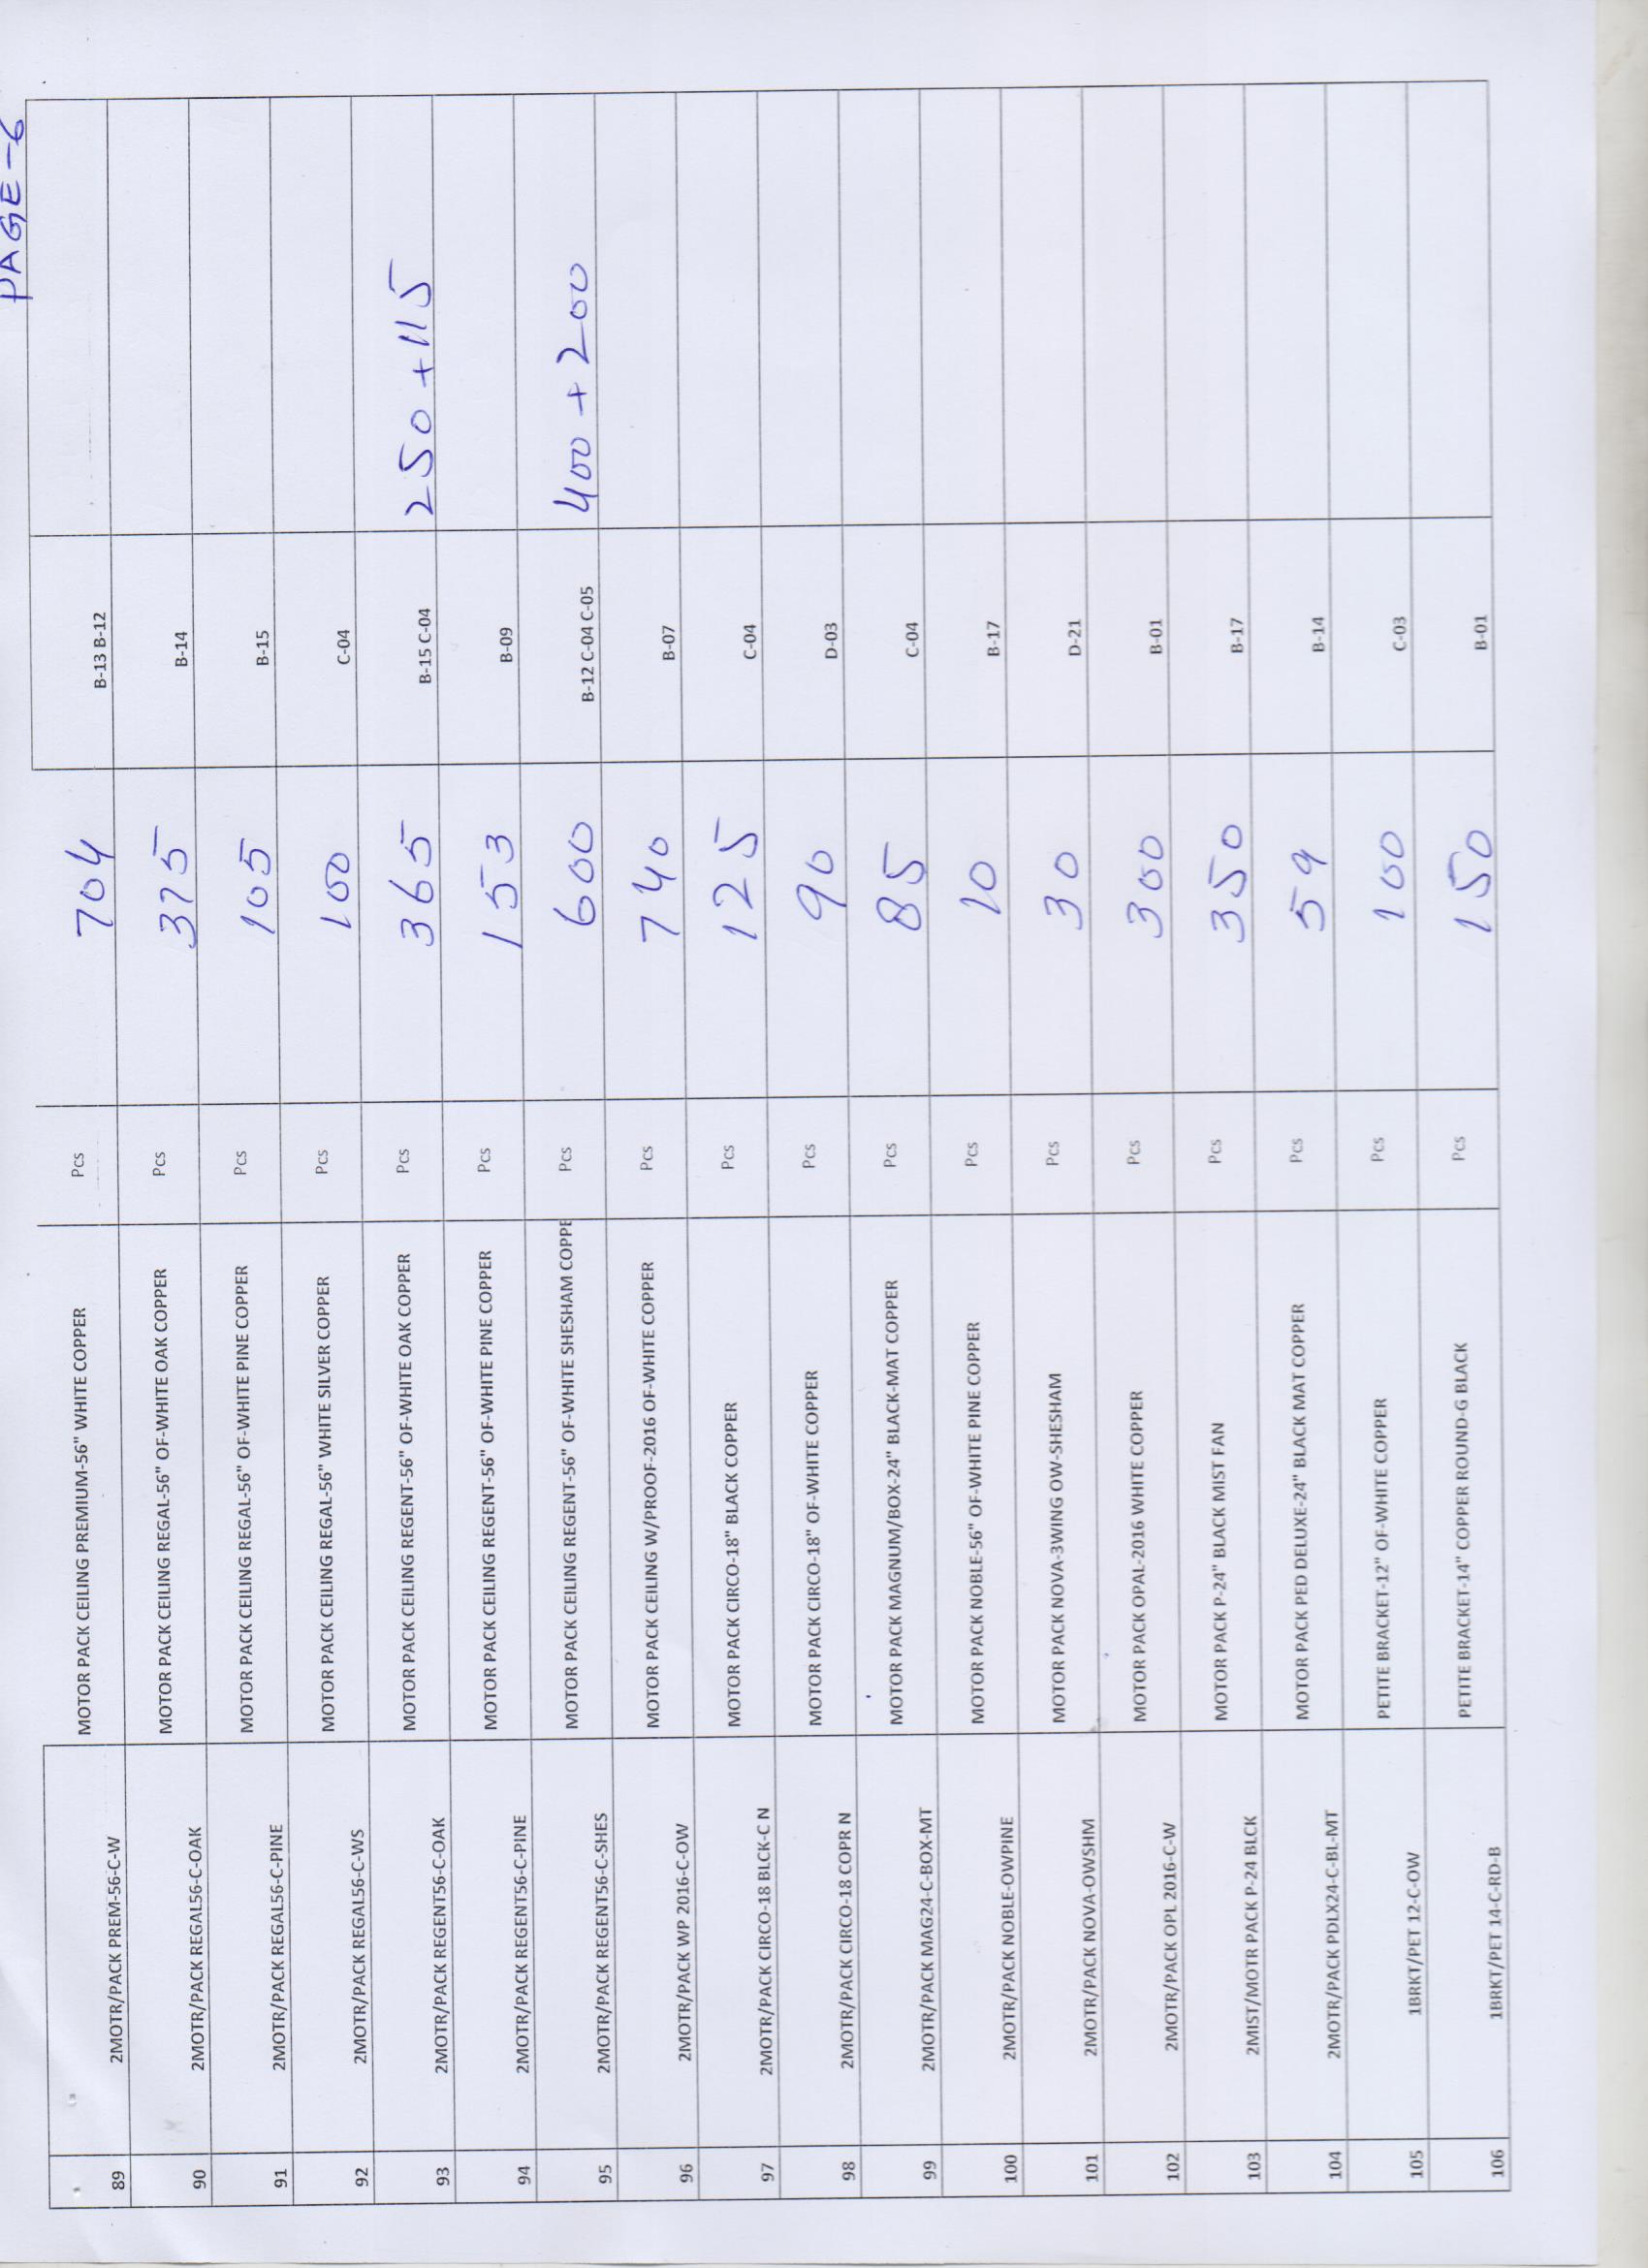 PAGE-6
89 2MOTR/PACK PREM-56-C-W MOTOR PACK CEILING PREMIUM-56" WHITE COPPER Pcs 704 B-13 B-12
90 2MOTR/PACK REGAL56-C-OAK MOTOR PACK CEILING REGAL-56" OF-WHITE OAK COPPER Pcs 375 B-14
91 2MOTR/PACK REGAL56-C-PINE MOTOR PACK CEILING REGAL-56" OF-WHITE PINE COPPER Pcs 105 B-15
92 2MOTR/PACK REGAL56-C-WS MOTOR PACK CEILING REGAL-56" WHITE SILVER COPPER Pcs 100 C-04
93 2MOTR/PACK REGENT56-C-OAK MOTOR PACK CEILING REGENT-56" OF-WHITE OAK COPPER Pcs 365 B-15 C-04 250 + 115
94 2MOTR/PACK REGENT56-C-PINE MOTOR PACK CEILING REGENT-56" OF-WHITE PINE COPPER Pcs 153 B-09
95 2MOTR/PACK REGENT56-C-SHES MOTOR PACK CEILING REGENT-56" OF-WHITE SHESHAM COPPE Pcs 600 B-12 C-04 C-05 400 + 200
96 2MOTR/PACK WP 2016-C-OW MOTOR PACK CEILING W/PROOF-2016 OF-WHITE COPPER Pcs 740 B-07
97 2MOTR/PACK CIRCO-18 BLCK-C N MOTOR PACK CIRCO-18" BLACK COPPER Pcs 125 C-04
98 2MOTR/PACK CIRCO-18 COPR N MOTOR PACK CIRCO-18" OF-WHITE COPPER Pcs 90 D-03
99 2MOTR/PACK MAG24-C-BOX-MT MOTOR PACK MAGNUM/BOX-24" BLACK-MAT COPPER Pcs 85 C-04
100 2MOTR/PACK NOBLE-OWPINE MOTOR PACK NOBLE-56" OF-WHITE PINE COPPER Pcs 10 B-17
101 2MOTR/PACK NOVA-OWSHM MOTOR PACK NOVA-3WING OW-SHESHAM Pcs 30 D-21
102 2MOTR/PACK OPL 2016-C-W MOTOR PACK OPAL-2016 WHITE COPPER Pcs 300 B-01
103 2MIST/MOTR PACK P-24 BLCK MOTOR PACK P-24" BLACK MIST FAN Pcs 350 B-17
104 2MOTR/PACK PDLX24-C-BL-MT MOTOR PACK PED DELUXE-24" BLACK MAT COPPER Pcs 59 B-14
105 1BRKT/PET 12-C-OW PETITE BRACKET-12" OF-WHITE COPPER Pcs 100 C-03
106 1BRKT/PET 14-C-RD-B PETITE BRACKET-14" COPPER ROUND-G BLACK Pcs 150 B-01